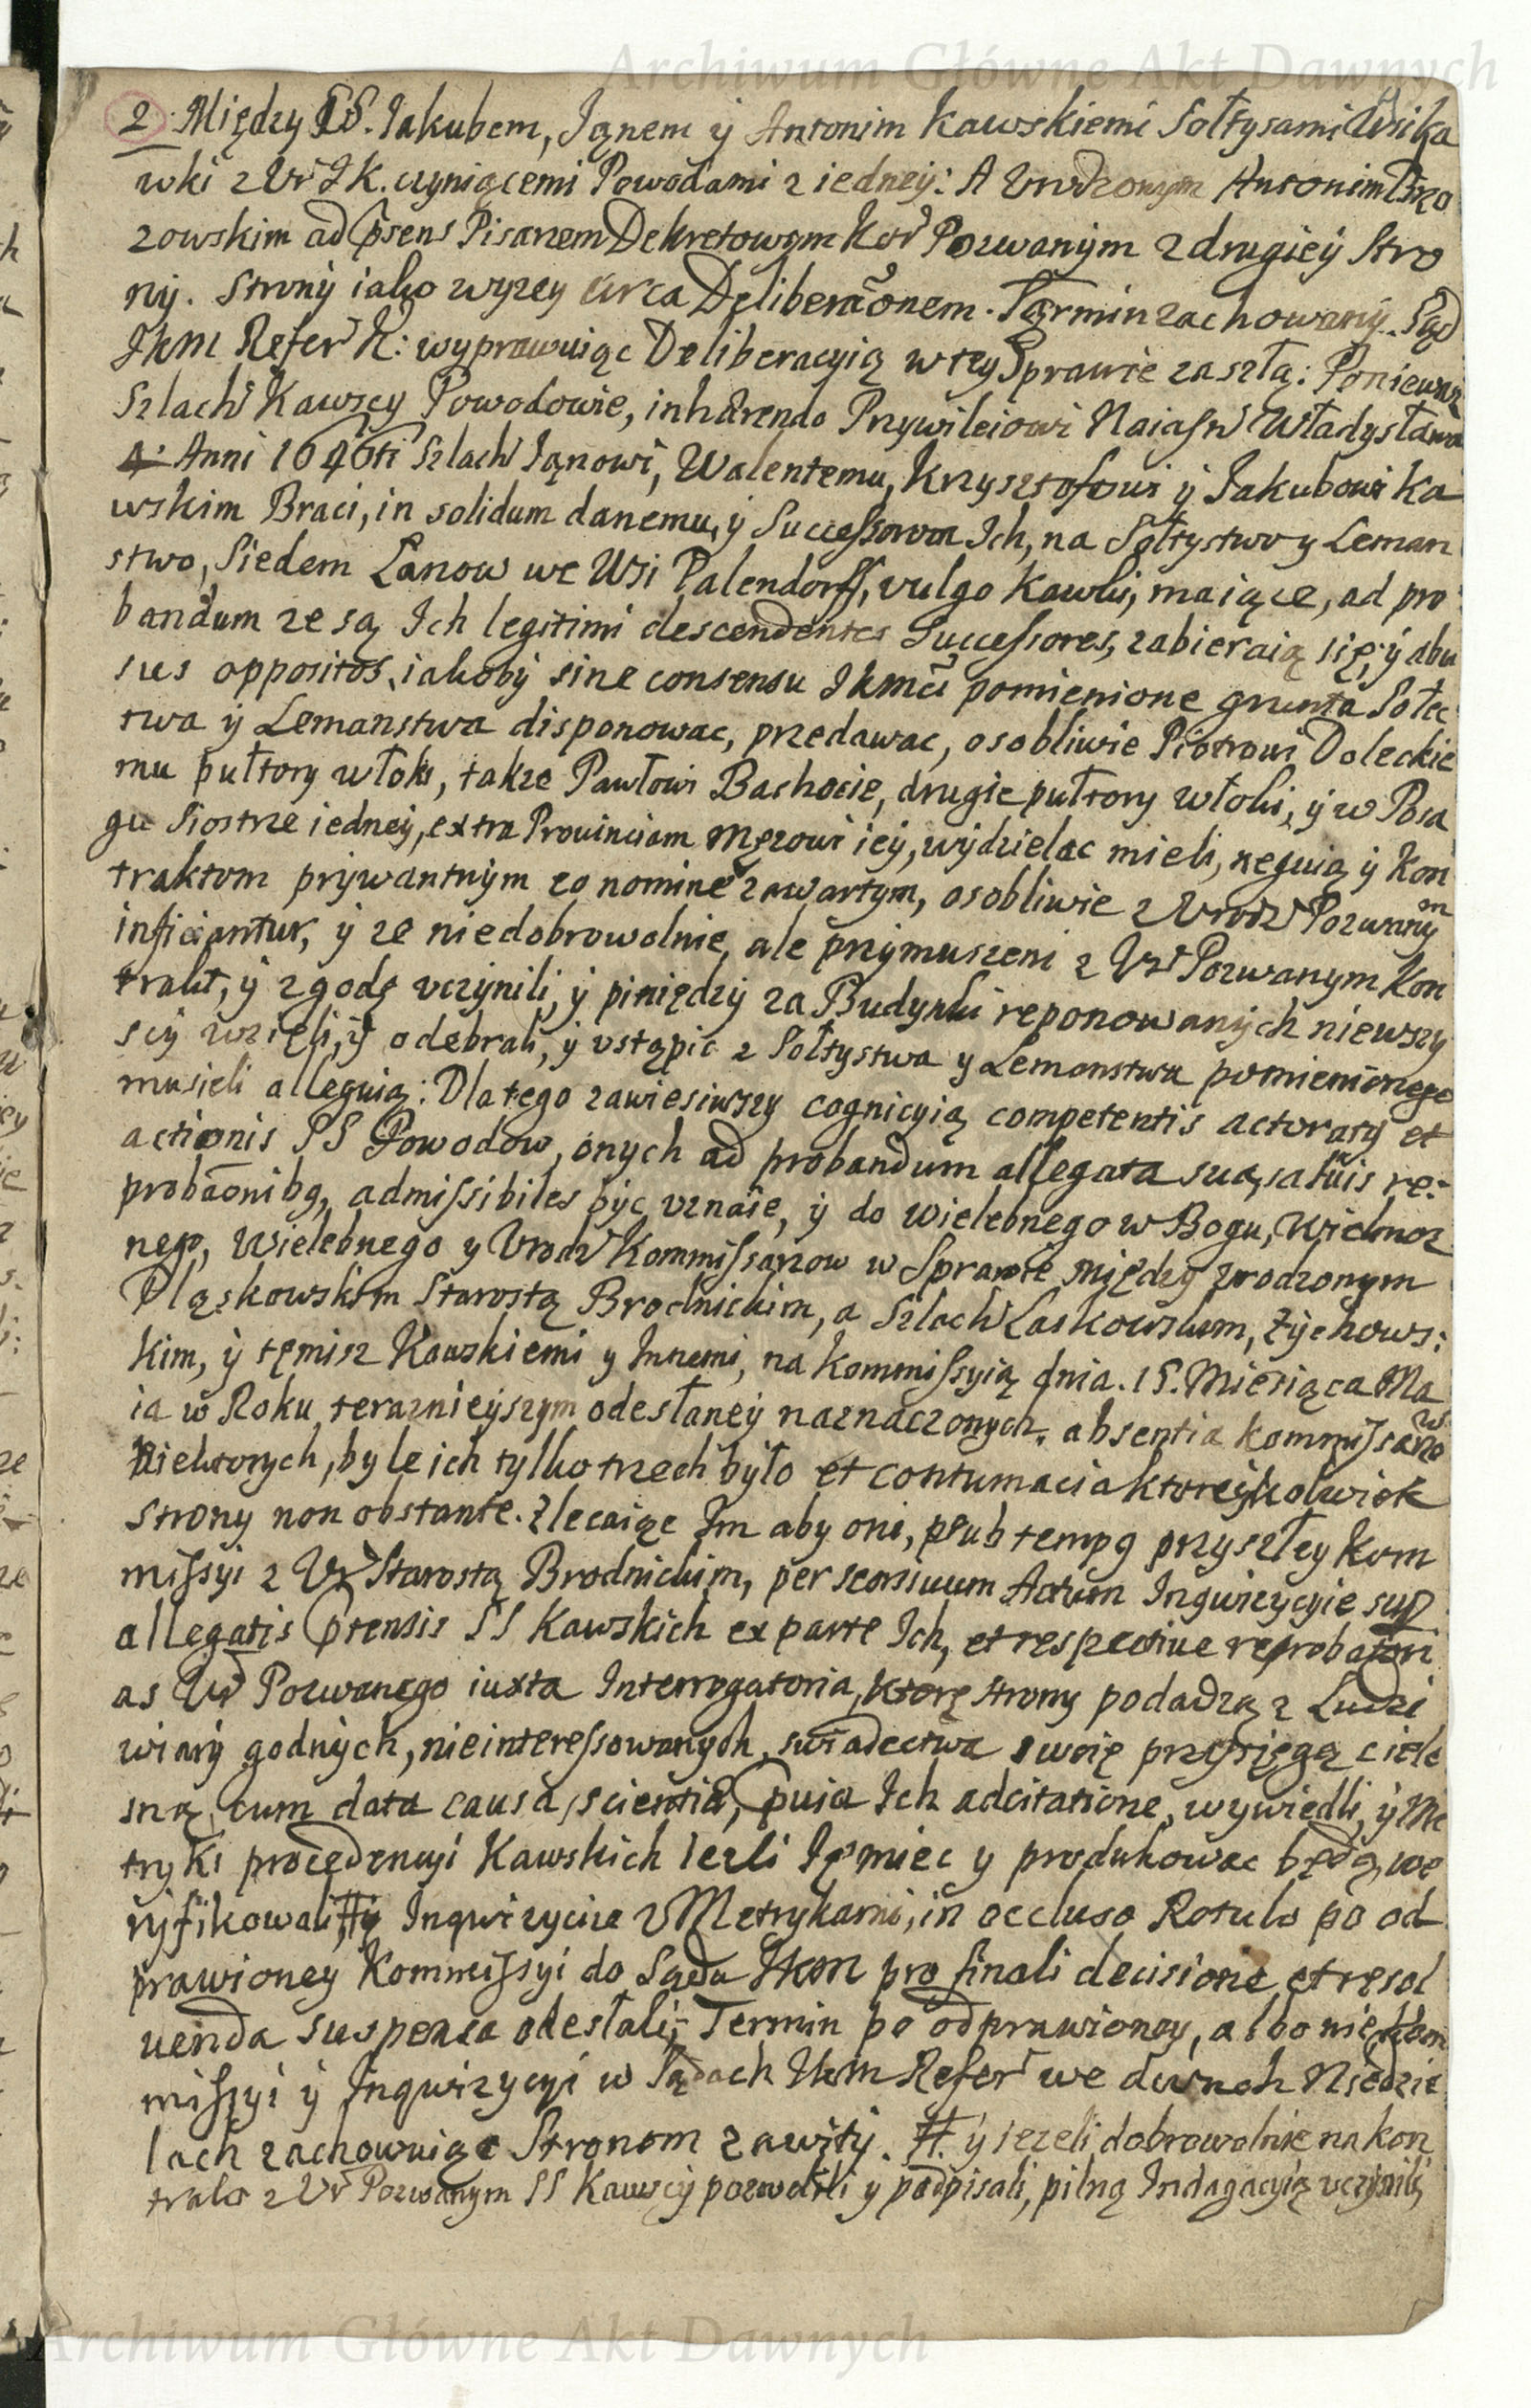 Archiwum Główne Akt Dawnych
2. Między SS. Iakubem, Iąnem ÿ Antonim Kawskiemi Sołtysami Wsi Ka
wki z Ur IK. czyniącemi Powodami z iedneÿ: A Urodzonym Antonim Brzo
zowskim ad psens Pisarzem Dekretowym Kor Pozwanÿm z drugieÿ Stro
nÿ. Stronÿ iako wyzey circa Deliberaõnem. Termin zachowanÿ. Sąd
IKM Refer K: wyprawuiąc Deliberacyią w tey Sprawie zaszłą: Poniewaz
Szlach Kawscy Powodowie, inhærendo Przywileiowi Naiasn Władysława
4. Anni 1646ti Szlach Iąnowi, Walentemu, Krzysztofowi ÿ Iakubowi Ka
wskim Braci, in solidum danemu, ÿ Successorom Ich, na Sołtystwo y Leman
stwo, Siedem Lanow we Wsi Palendorff, vulgo Kawki, maiące, ad pro
bandum ze są Ich legitimi descendentes Successores, zabieraią się, ÿ abu
sus oppositos, iakobÿ sine consensu IKMci pomienione grunta Sołec
twa ÿ Lemanstwa disponowac, przedawac, osobliwie Piotrowi Doleckie
mu pułtory włoki, takze Pawłowi Bachocie, drugie pułtory włoki, ÿ w Posa
gu Siostrze iedneÿ, extra Provinciam Męzowi ieÿ, wÿdzielac mieli, neguią ÿ Kon
traktom prÿwantnÿm eo nomine zawartym, osobliwie z Urodz Pozwanÿm
inficiantur, ÿ ze niedobrowolnie, ale przÿmuszeni z Ur Pozwanym Kon
trakt, ÿ zgodę uczÿnili, ÿ pieniędzÿ za Budynki reponowanÿch niewszy
scÿ wzięli, ÿ odebrali, ÿ ustąpic z Sołtystwa y Lemanstwa pomienionego
musieli alleguią: Dlatego zawiesiwszy cognicyią competentis actoratus et
actionis SS Powodow, onych ad probandum allegata sua, saluis re:
probaõnibq, admissibiles bÿc uznaie, ÿ do Wielebnego w Bogu, Wielmoz
nego, Wielebnego y Urodz Kommissarzow w Sprawie między Urodzonym
Pląskowskim Starostą Brodnickim, a Szlach Laskowskim, Zÿchows:
kim, ÿ temisz Kawskiemi y Innemi, na Kommissyią dnia. 15. Miesiąca Ma
ia w Roku teraznieÿszym odesłaneÿ naznaczonych, absentia Kommissarzow
niektorych, byle ich tylko trzech bÿło et contumacia ktoreÿkolwiek
strony non obstante. Zlecaiąc Im aby oni, sub tempq przyszłey Kom
missyi z Ur Starostą Brodnickim, per seorsiuum Actum Inquizycyie sup
allegatis ptensis SS Kawskich ex parte Ich, et respective reprobatori
as Ur Pozwanego iuxta Interrogatoria, ktorę strony podadzą z Ludzi
wiarÿ godnÿch, nieinteressowanych, swiadectwa swoię przysięgą ciele
sną, cum data causa scientiæ, pvia Ich adcitatione, wywiedli, ÿ Me
tryki procedencyi Kawskich Iezli Ię miec y produkowac będą, we
ryfikowali, # ÿ Inqwizycie z Metrykami, in occluso Rotulo po od
prawioney Kommissyi do Sądu IKM pro finali decisione, et resol
uenda suspensa odesłali; Termin po odprawioney, albo nie, Kom
missyi ÿ Inqwizycyi w Sądach IKM Refer we dwuch Niedzie
lach zachowuiąc Stronom zawity. #. ÿ iezeli dobrowolnie na kon
trakt z Ur Pozwanym SS Kawscÿ pozwolili y podpisali, pilną Indagacyią uczÿnili,
Archiwum Główne Akt Dawnych